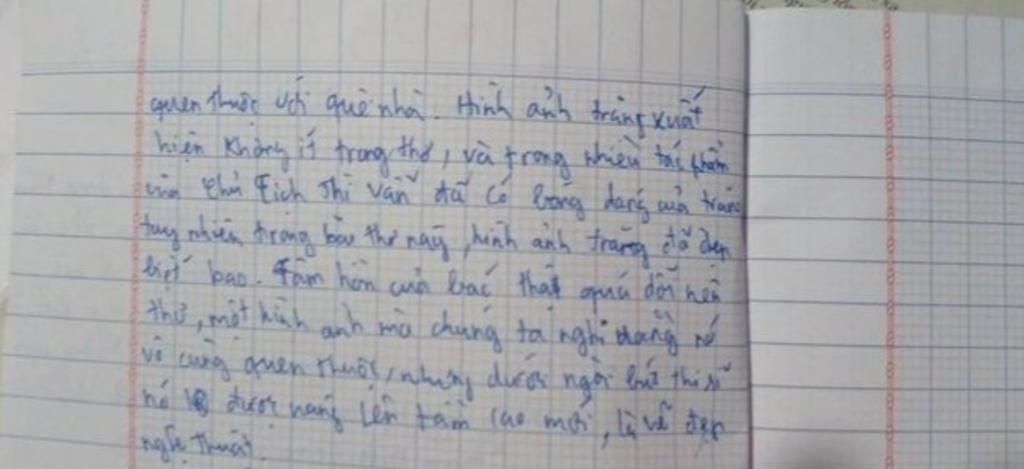 quen thuộc với quê nhà. Hình ảnh trăng xuất
hiện không ít trong thơ, và trong nhiều tác phẩm
của chủ tịch thì vẫn đã có bóng dáng của trăng
tuy nhiên trong bài thơ này, hình ảnh trăng đã đẹp
biết bao. Tâm hồn của bác thật quá đỗi nên
thơ, một hình anh mà chúng ta nghĩ rằng nó
vô cùng quen thuộc, nhưng dưới ngòi bút thi sĩ
nó được nang lên tầm cao mới, là vẻ đẹp
nghệ thuật.